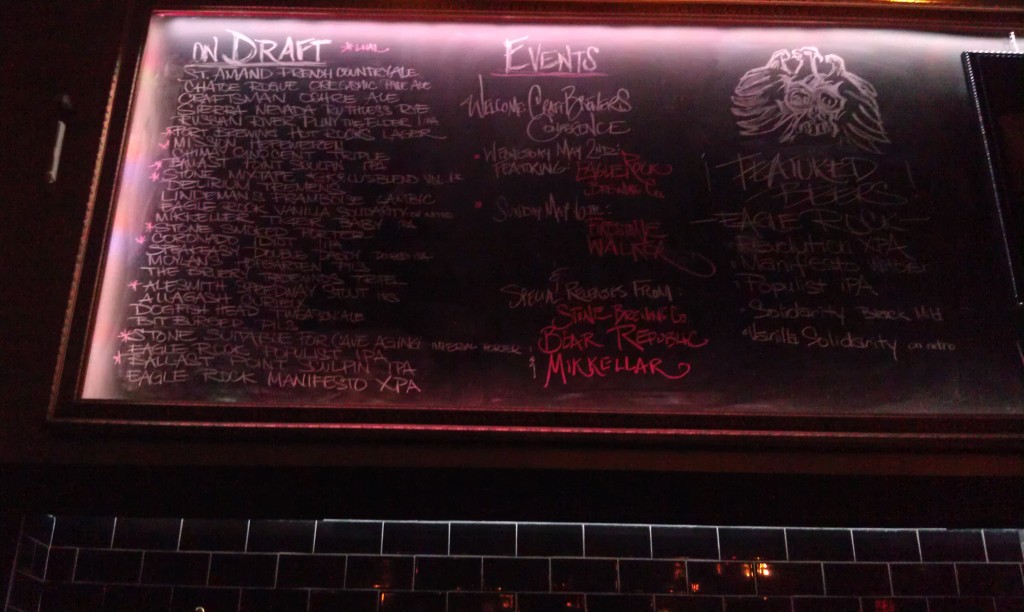 ON DRAFT *LOCAL
ST. AMAND FRENCH COUNTRY ALE
CHATOE ROGUE OREGASMIC PALE ALE
CRAFTSMAN ALE
SIERRA NEVADA RUTHLESS RYE
RUSSIAN RIVER PLINY THE ELDER IPA
*PORT BREWING HOT ROCKS LAGER
MISSION HEFEWEIZEN
TRIPLE
BALLAST POINT SCULPIN IPA
*STONE MIXTAPE BLEND VOL
DELIRIUM TREMENS
LINDEMAN'S FRAMBOISE LAMBIC
EAGLE ROCK VANILLA SOLIDARITY ON NITRO
MIKKELLER IPA
*STONE SMOKED PORTER
CORONADO IPA
DOUBLE DADDY
MOYLAN'S
THE BRUERY
*ALESMITH SPEEDWAY STOUT
ALLAGASH
DOGFISH HEAD ALE
PILS
*STONE SUITABLE FOR CAVE AGING IMPERIAL PORTER
EAGLE ROCK POPULIST IPA
*BALLAST POINT SCULPIN IPA
EAGLE ROCK MANIFESTO XPA
EVENTS
WELCOME CRAFT BREWERS
CONFERENCE
WEDNESDAY MAY 2ND:
FEATURING EAGLE ROCK
BREWING CO.
SUNDAY MAY 6TH:
FIRESTONE
WALKER
&
SPECIAL RELEASES FROM:
STONE BREWING CO
BEAR REPUBLIC
& MIKKELLAR
¡FEATURED
BEERS!
-EAGLE ROCK-
Revolution XPA
Manifesto Witbier
Populist IPA
Solidarity Black Mild
Vanilla Solidarity on nitro